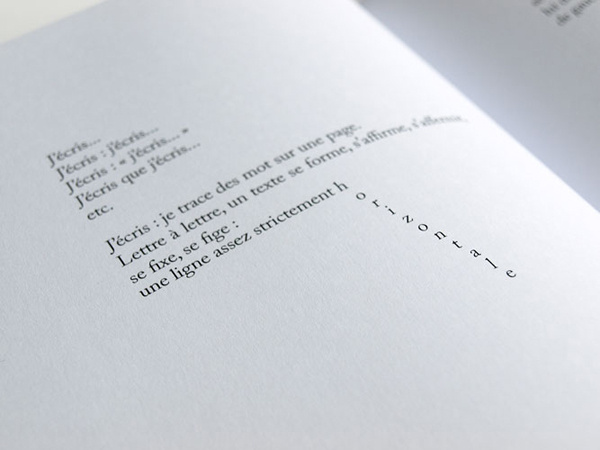 J'écris...
J'écris : j'écris...
J'écris : « j'écris... »
J'écris que j'écris...
etc.
J'écris : je trace des mot sur une page.
Lettre à lettre, un texte se forme, s'affirme, s'affermit,
se fixe, se fige :
une ligne assez strictement h
o
r
i
z
o
n
t
a
l
e